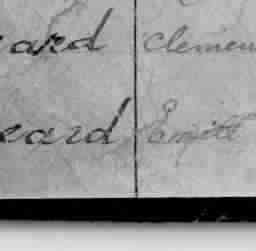 eard Clemen
eard Emitt